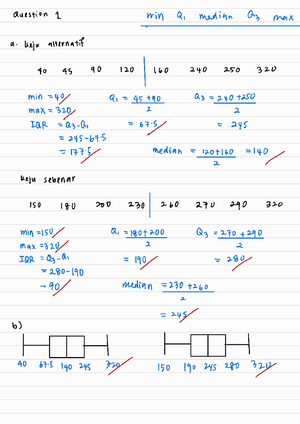 Question 1
min Q₁ median Q₃ max
a. keju alternatif
40 45 90 120 | 160 240 250 320
min = 40
max = 320
IQR = Q₃-Q₁
= 245-67.5
= 177.5
Q₁ = 45+90/2
= 67.5
Q₃ = 240+250/2
= 245
median = 120+160/2 = 140
keju sebenar
150 180 200 230 | 260 270 290 320
min = 150
max = 320
IQR = Q₃-Q₁
= 280-190
= 90
Q₁ = 180+200/2
= 190
Q₃ = 270+290/2
= 280
median = 230+260/2
= 245
b)
40 67.5 140 245 320
150 190 245 280 320